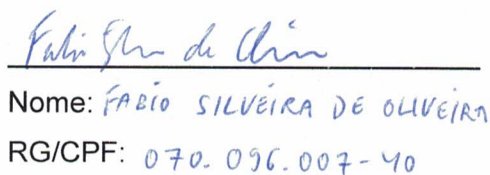 Nome: FABIO SILVEIRA DE OLIVEIRA
RG/CPF: 070.096.007-40